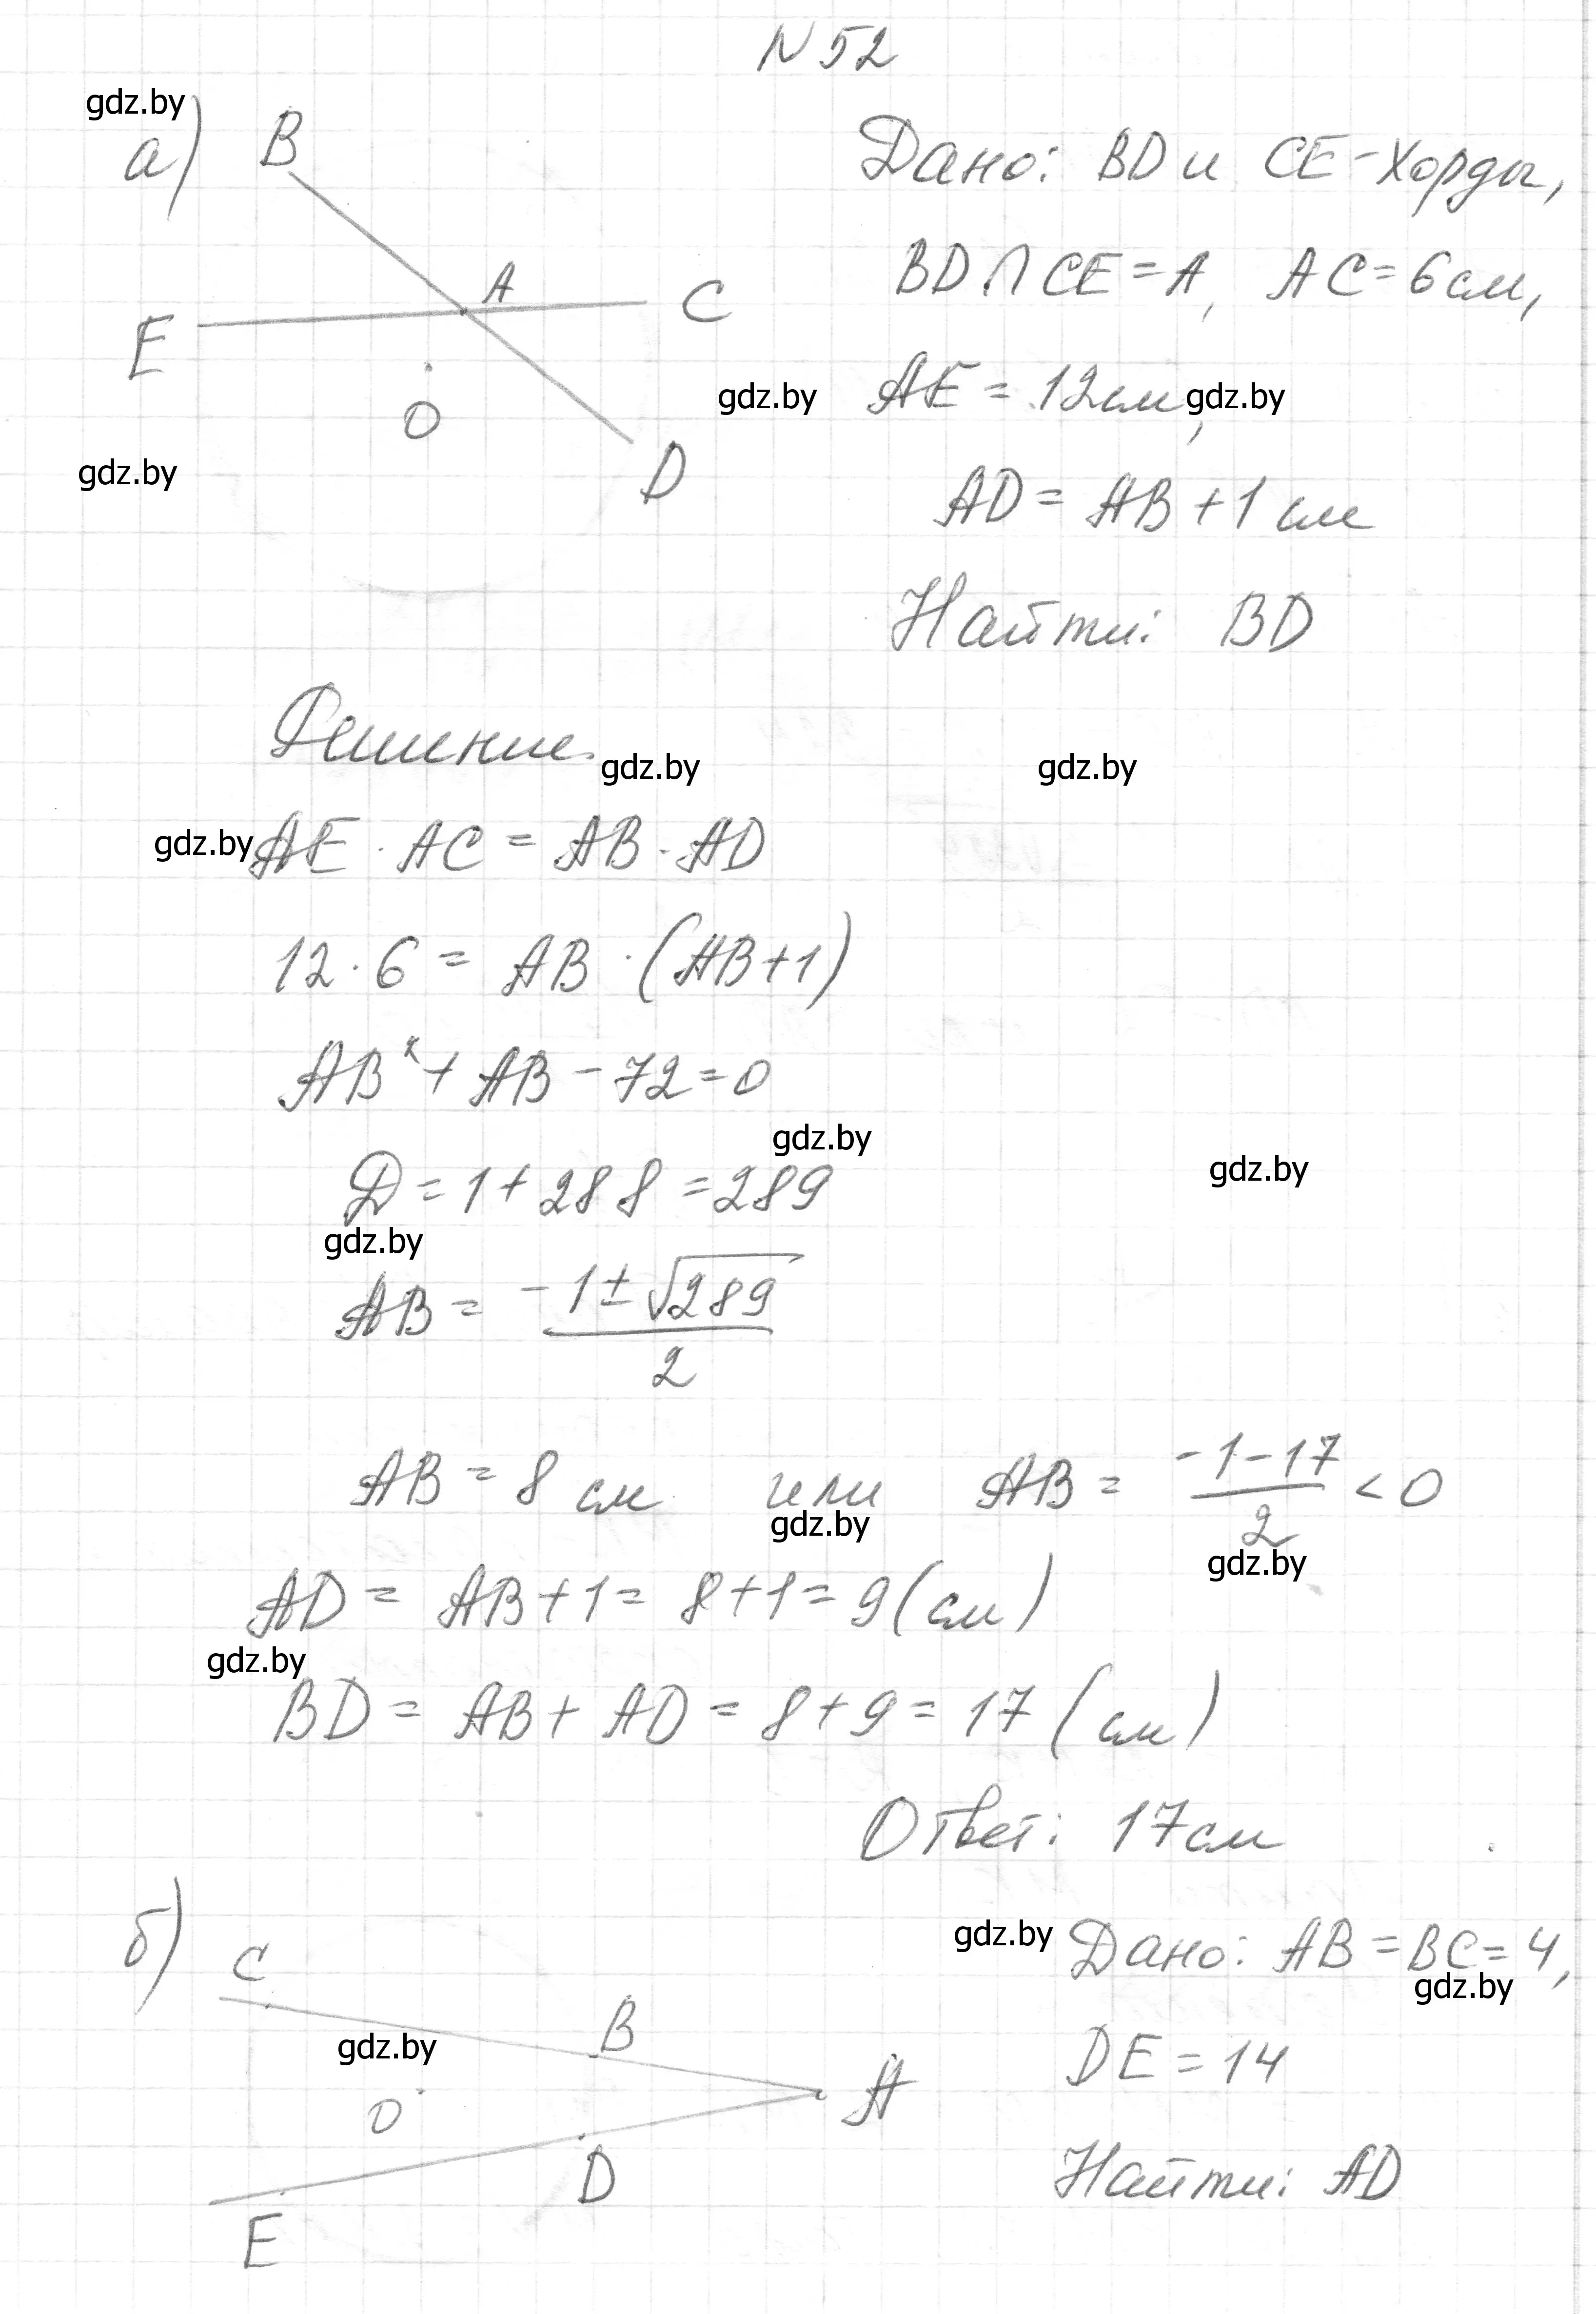 N 52
gdz.by
а)
B
A
C
E
O
D
gdz.by
Дано: BD и CE - хорды,
BD ∩ CE = A, AC = 6 см,
gdz.by
AE = 12 см,
gdz.by
AD = AB + 1 см
Найти: BD
Решение.
gdz.by
gdz.by
gdz.by
AE · AC = AB · AD
12 · 6 = AB · (AB + 1)
AB² + AB - 72 = 0
gdz.by
gdz.by
Д = 1 + 288 = 289
gdz.by
AB = (-1 ± √289) / 2
AB = 8 см или AB = (-1 - 17) / 2 < 0
gdz.by
gdz.by
AD = AB + 1 = 8 + 1 = 9 (см)
gdz.by
BD = AB + AD = 8 + 9 = 17 (см)
Ответ: 17 см
б)
C
B
A
gdz.by
O
D
E
gdz.by
Дано: AB = BC = 4,
gdz.by
DE = 14
Найти: AD